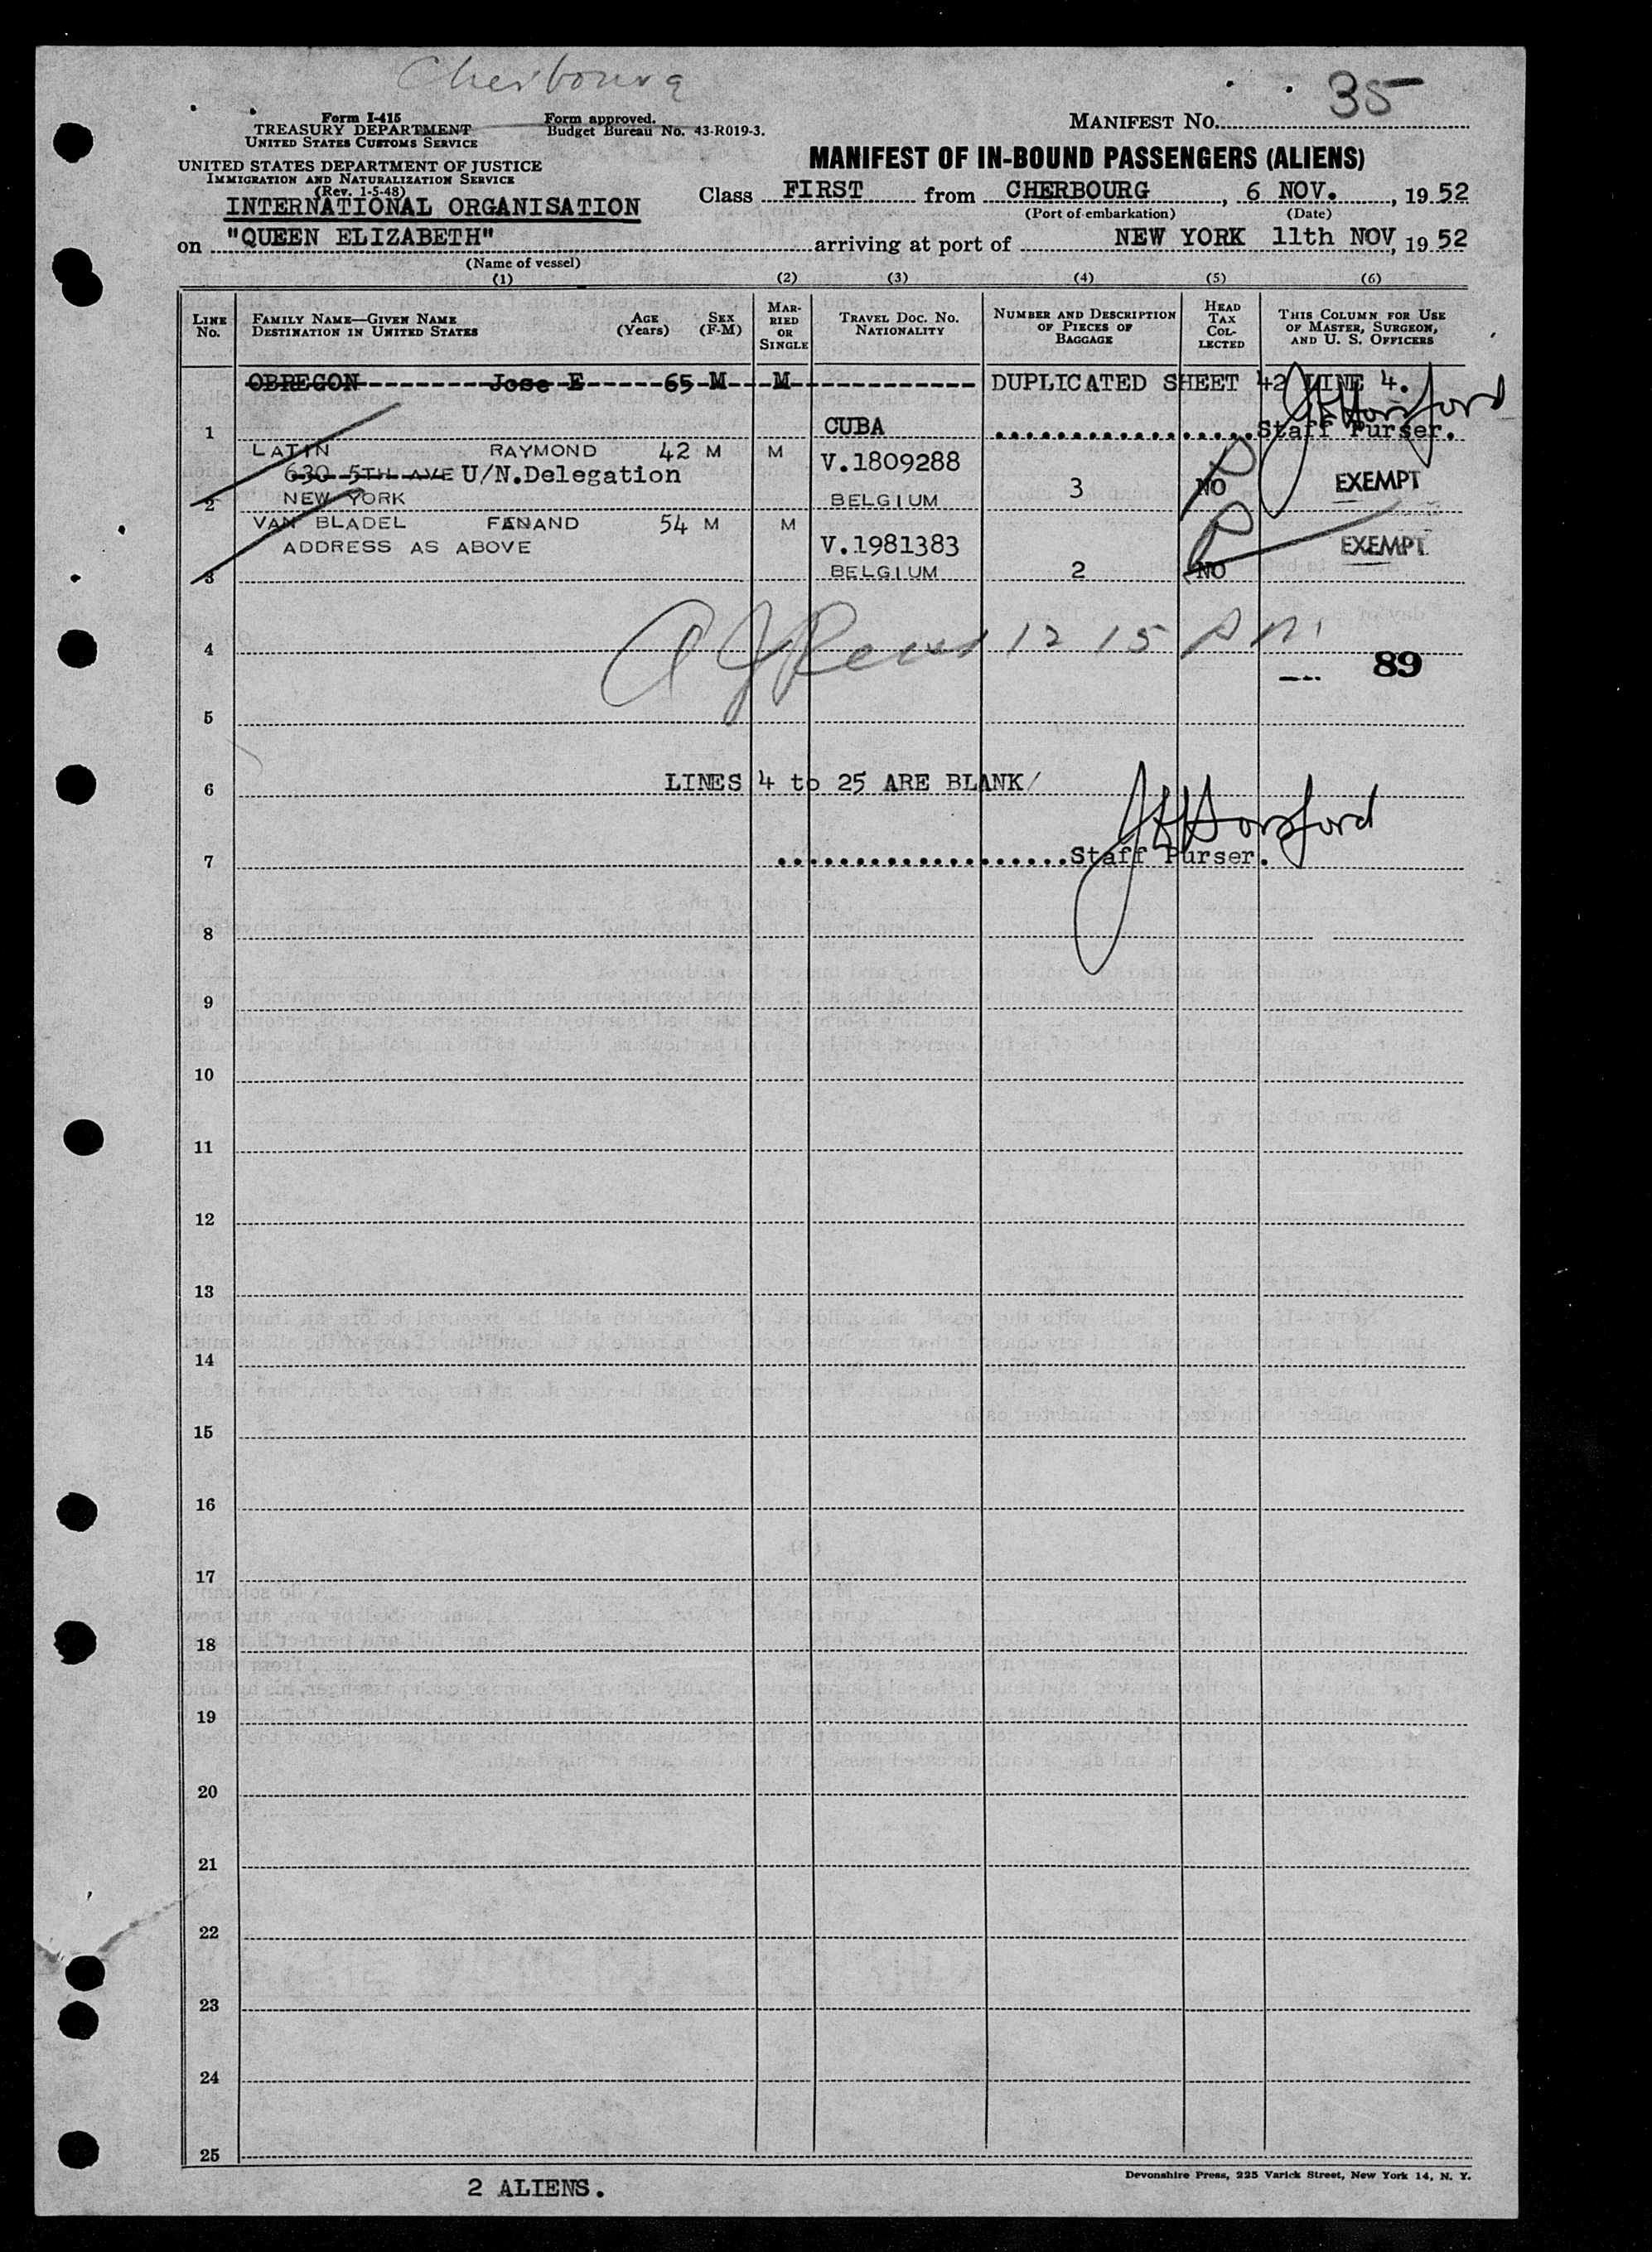 Cherbourg
35
Form I-415
TREASURY DEPARTMENT
UNITED STATES CUSTOMS SERVICE
Form approved.
Budget Bureau No. 43-R019-3.
MANIFEST No.
UNITED STATES DEPARTMENT OF JUSTICE
IMMIGRATION AND NATURALIZATION SERVICE
(Rev. 1-5-48)
MANIFEST OF IN-BOUND PASSENGERS (ALIENS)
INTERNATIONAL ORGANISATION
Class FIRST from CHERBOURG, 6 NOV., 1952
(Port of embarkation) (Date)
on "QUEEN ELIZABETH" arriving at port of NEW YORK 11th NOV, 1952
(Name of vessel)
(1) (2) (3) (4) (5) (6)
LINE No. FAMILY NAME—GIVEN NAME DESTINATION IN UNITED STATES AGE (Years) SEX (F-M) MARRIED OR SINGLE TRAVEL DOC. NO. NATIONALITY NUMBER AND DESCRIPTION OF PIECES OF BAGGAGE HEAD TAX COLLECTED THIS COLUMN FOR USE OF MASTER, SURGEON, AND U. S. OFFICERS
OBREGON Jose E 65 M M DUPLICATED SHEET 42 LINE 4.
1 CUBA Staff Purser.
LATIN RAYMOND 42 M M V.1809288
630 5TH AVE U/N.Delegation
2 NEW YORK BELGIUM 3 NO EXEMPT
VAN BLADEL FENAND 54 M M
ADDRESS AS ABOVE V.1981383 EXEMPT
3 BELGIUM 2 NO
4 12 15 P M
89
5
6 LINES 4 to 25 ARE BLANK/
7 Staff Purser.
8
9
10
11
12
13
14
15
16
17
18
19
20
21
22
23
24
25
2 ALIENS.
Devonshire Press, 225 Varick Street, New York 14, N. Y.